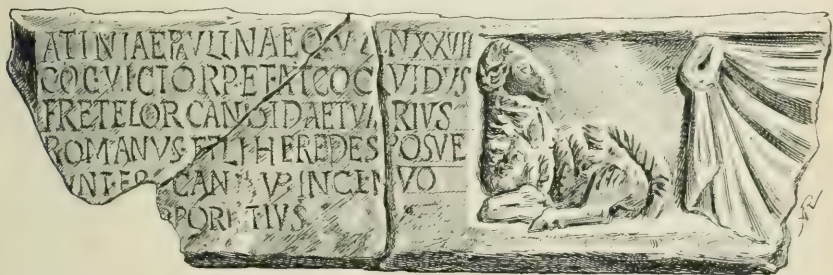 ATINIAE PAVLINAE Q V AN XXVIII
COC VICTOR P ET AT COC VIDVS
FRETEIOR CANDIDA ET VARIVS
ROMANVS FILI HEREDES POSVE
VNT ER CAN V P INGENVO
PORITIVS